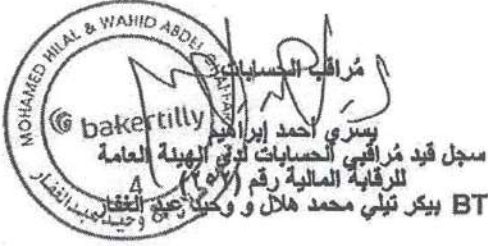 MOHAMED HILAL & WAHID ABDEL GHAFFAR
bakertilly
4
وحيد عبد الغفار
مُراقب الحسابات
يسري أحمد إبراهيم
سجل قيد مُراقبي الحسابات لدى الهيئة العامة
للرقابة المالية رقم (٢٠٧)
BT بيكر تيلي محمد هلال و وحيد عبد الغفار